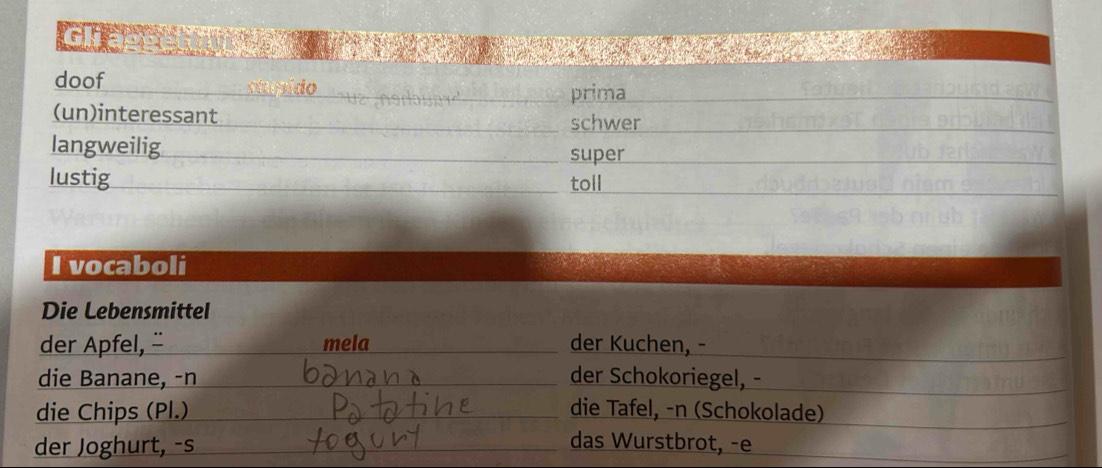 Gli aggettivi
doof stupido
(un)interessant
langweilig
lustig
prima
schwer
super
toll
I vocaboli
Die Lebensmittel
der Apfel, -̈ mela
die Banane, -n banana
die Chips (Pl.) Patatine
der Joghurt, -s yogurt
der Kuchen, -
der Schokoriegel, -
die Tafel, -n (Schokolade)
das Wurstbrot, -e